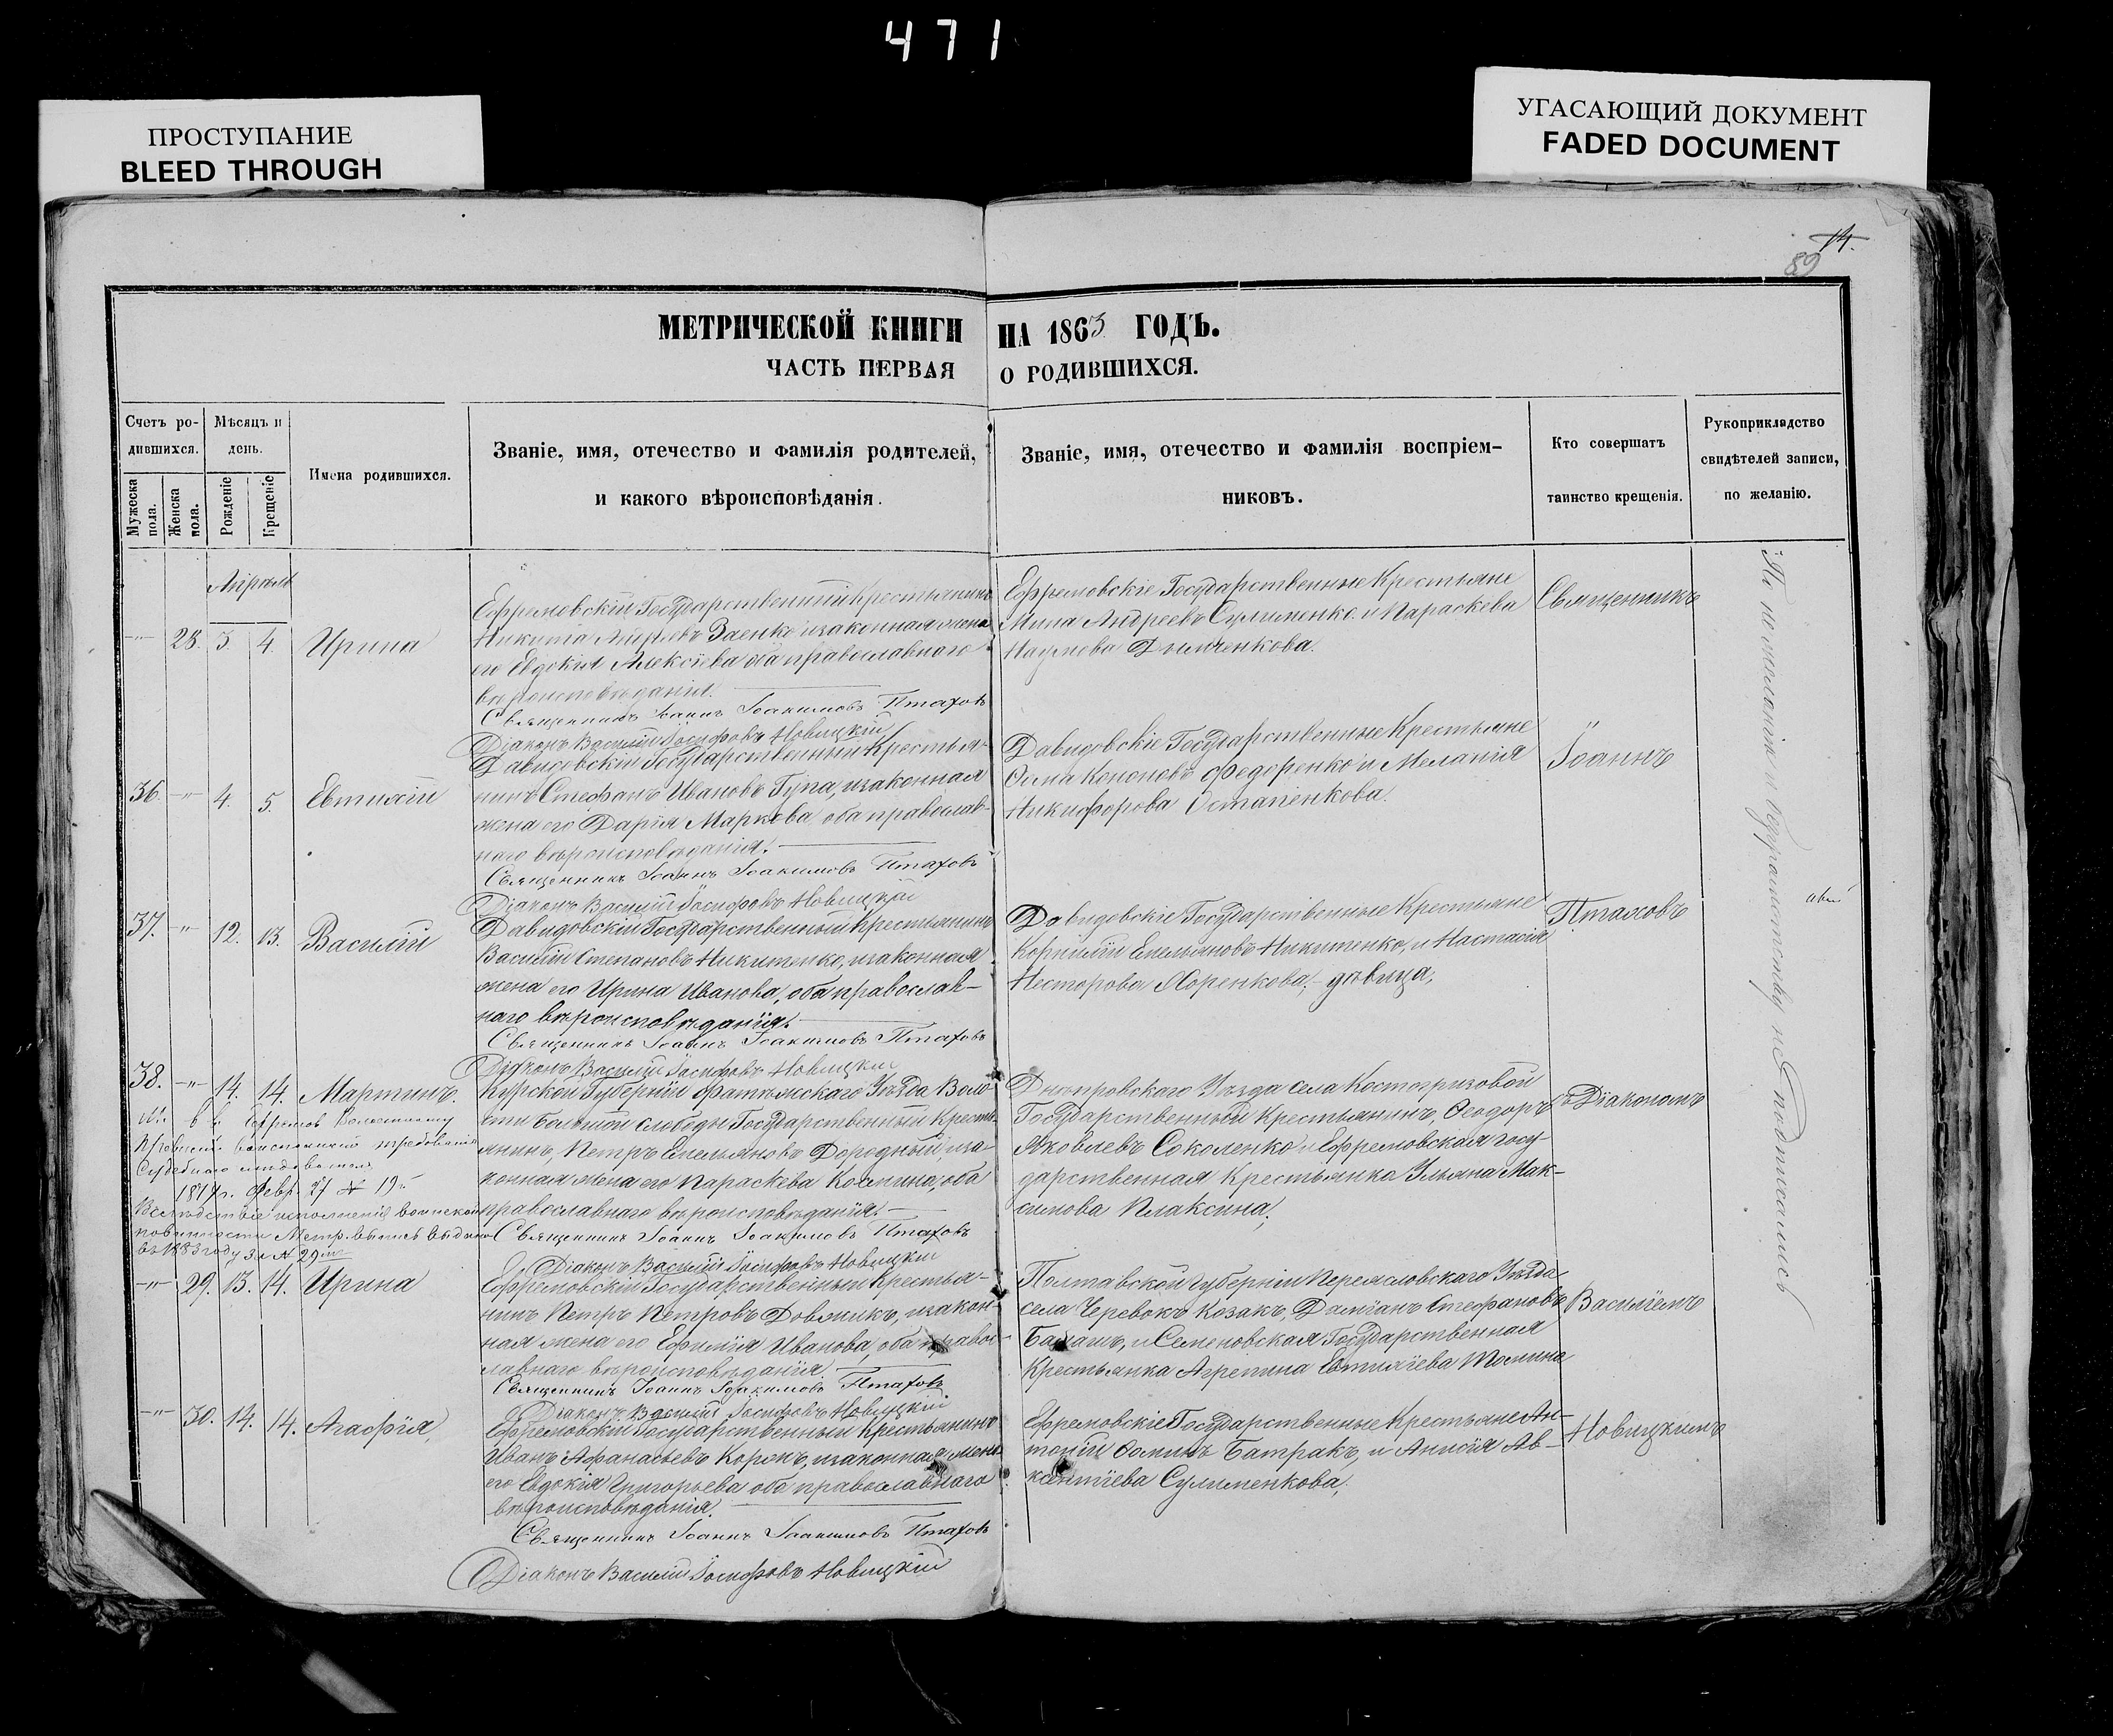 471
ПРОСТУПАНИЕ
BLEED THROUGH
УГАСАЮЩИЙ ДОКУМЕНТ
FADED DOCUMENT
14.
89
МЕТРИЧЕСКОЙ КНИГИ НА 1863 ГОДЪ.
ЧАСТЬ ПЕРВАЯ О РОДИВШИХСЯ.
Счетъ ро-
дившихся.
Мужеска пола.
Женска пола.
Мѣсяцъ и
день.
Рожденіе
Крещеніе
Имена родившихся.
Званіе, имя, отечество и фамилія родителей,
и какого вѣроисповѣданія.
Званіе, имя, отечество и фамилія воспріем-
никовъ.
Кто совершатъ
таинство крещенія.
Рукоприкладство
свидѣтелей записи,
по желанію.
Апрѣль
28. 3. 4. Ирина
Ефремовскій Государственный Крестьянинъ
Никита Заенко изаконная жена
его Евдокія Алексіева оба православного
вѣроисповѣданія.
Священникъ Іоаннъ Іоакимовъ Птаховъ
Діаконъ Василій Іосифовъ Новицкій
Ефремовскіе Государственные Крестьяне
Мина Андреевъ Сулименко и Параскева
Наумова
36. 4. 5. Евтихій
Давидовскій Государственный Крестья-
нинъ Стефанъ Ивановъ Гупа, изаконная
жена его Дарія Маркова оба православ-
наго вѣроисповѣданія.
Священникъ Іоаннъ Іоакимовъ Птаховъ
Діаконъ Василій Іосифовъ Новицкій
Давидовскіе Государственные Крестьяне
Ѳома Кононовъ Федоренко и Меланія
Никифорова Остапенкова.
37. 12. 13. Василій
Давидовскій Государственный Крестьянинъ
Василій Степановъ Никитенко, изаконная
жена его Ирина Иванова, оба православ-
наго вѣроисповѣданія.
Священникъ Іоаннъ Іоакимовъ Птаховъ
Діаконъ Василій Іосифовъ Новицкій
Давидовскіе Государственные Крестьяне
Корнилій Емельяновъ Никитенко, и Настасія
Несторова Лоренкова, дѣвица,
38. 14. 14. Мартинъ.
1879г. Февр. 27 № 19
Вслѣдствіе исполненія воинской
повинности Метр. выпись выдана
въ 1883 году за № 29
Курской Губерніи Фатѣжскаго Уѣзда Воло-
сти Большой слободы Государственный Кресть-
янинъ, Петръ Емельяновъ Дородный, иза-
конная жена его Параскева оба
православнаго вѣроисповѣданія.
Священникъ Іоаннъ Іоакимовъ Птаховъ
Діаконъ Василій Іосифовъ Новицкій
Днѣпровскаго Уѣзда села Костогризовой
Государственный Крестьянинъ Ѳеодоръ
Яковлевъ Соколенко и Ефремовская госу-
дарственная Крестьянка Ульяна Мак-
симова Плаксина;
29. 13. 14. Ирина
Ефремовскій Государственный Крестья-
нинъ Петръ Петровъ Довжикъ, изакон-
ная жена его Ефимія Иванова, оба правос-
лавнаго вѣроисповѣданія.
Священникъ Іоаннъ Іоакимовъ Птаховъ
Діаконъ Василій Іосифовъ Новицкій
Полтавской губерніи Переясловскаго Уѣзда
села Черевокъ Козакъ, Даміанъ Стефановъ
и Семеновская Государственная
Крестьянка Агрепина Евтихіева Томина
30. 14. 14. Агафія,
Ефремовскій Государственный Крестьянинъ
Иванъ Афанасьевъ Коренъ, изаконная жена
его Евдокія Григорьева оба православнаго
вѣроисповѣданія.
Священникъ Іоаннъ Іоакимовъ Птаховъ
Діаконъ Василій Іосифовъ Новицкій
Ефремовскіе Государственные Крестьяне Ан-
тоній Ѳоминъ Батракъ, и Анисія Ав-
ксентіева Сулименкова.
Священникъ
Іоаннъ
Птаховъ
съ Діакономъ
Василіемъ
Новицкимъ
По не желанію и безграмотству не подписались